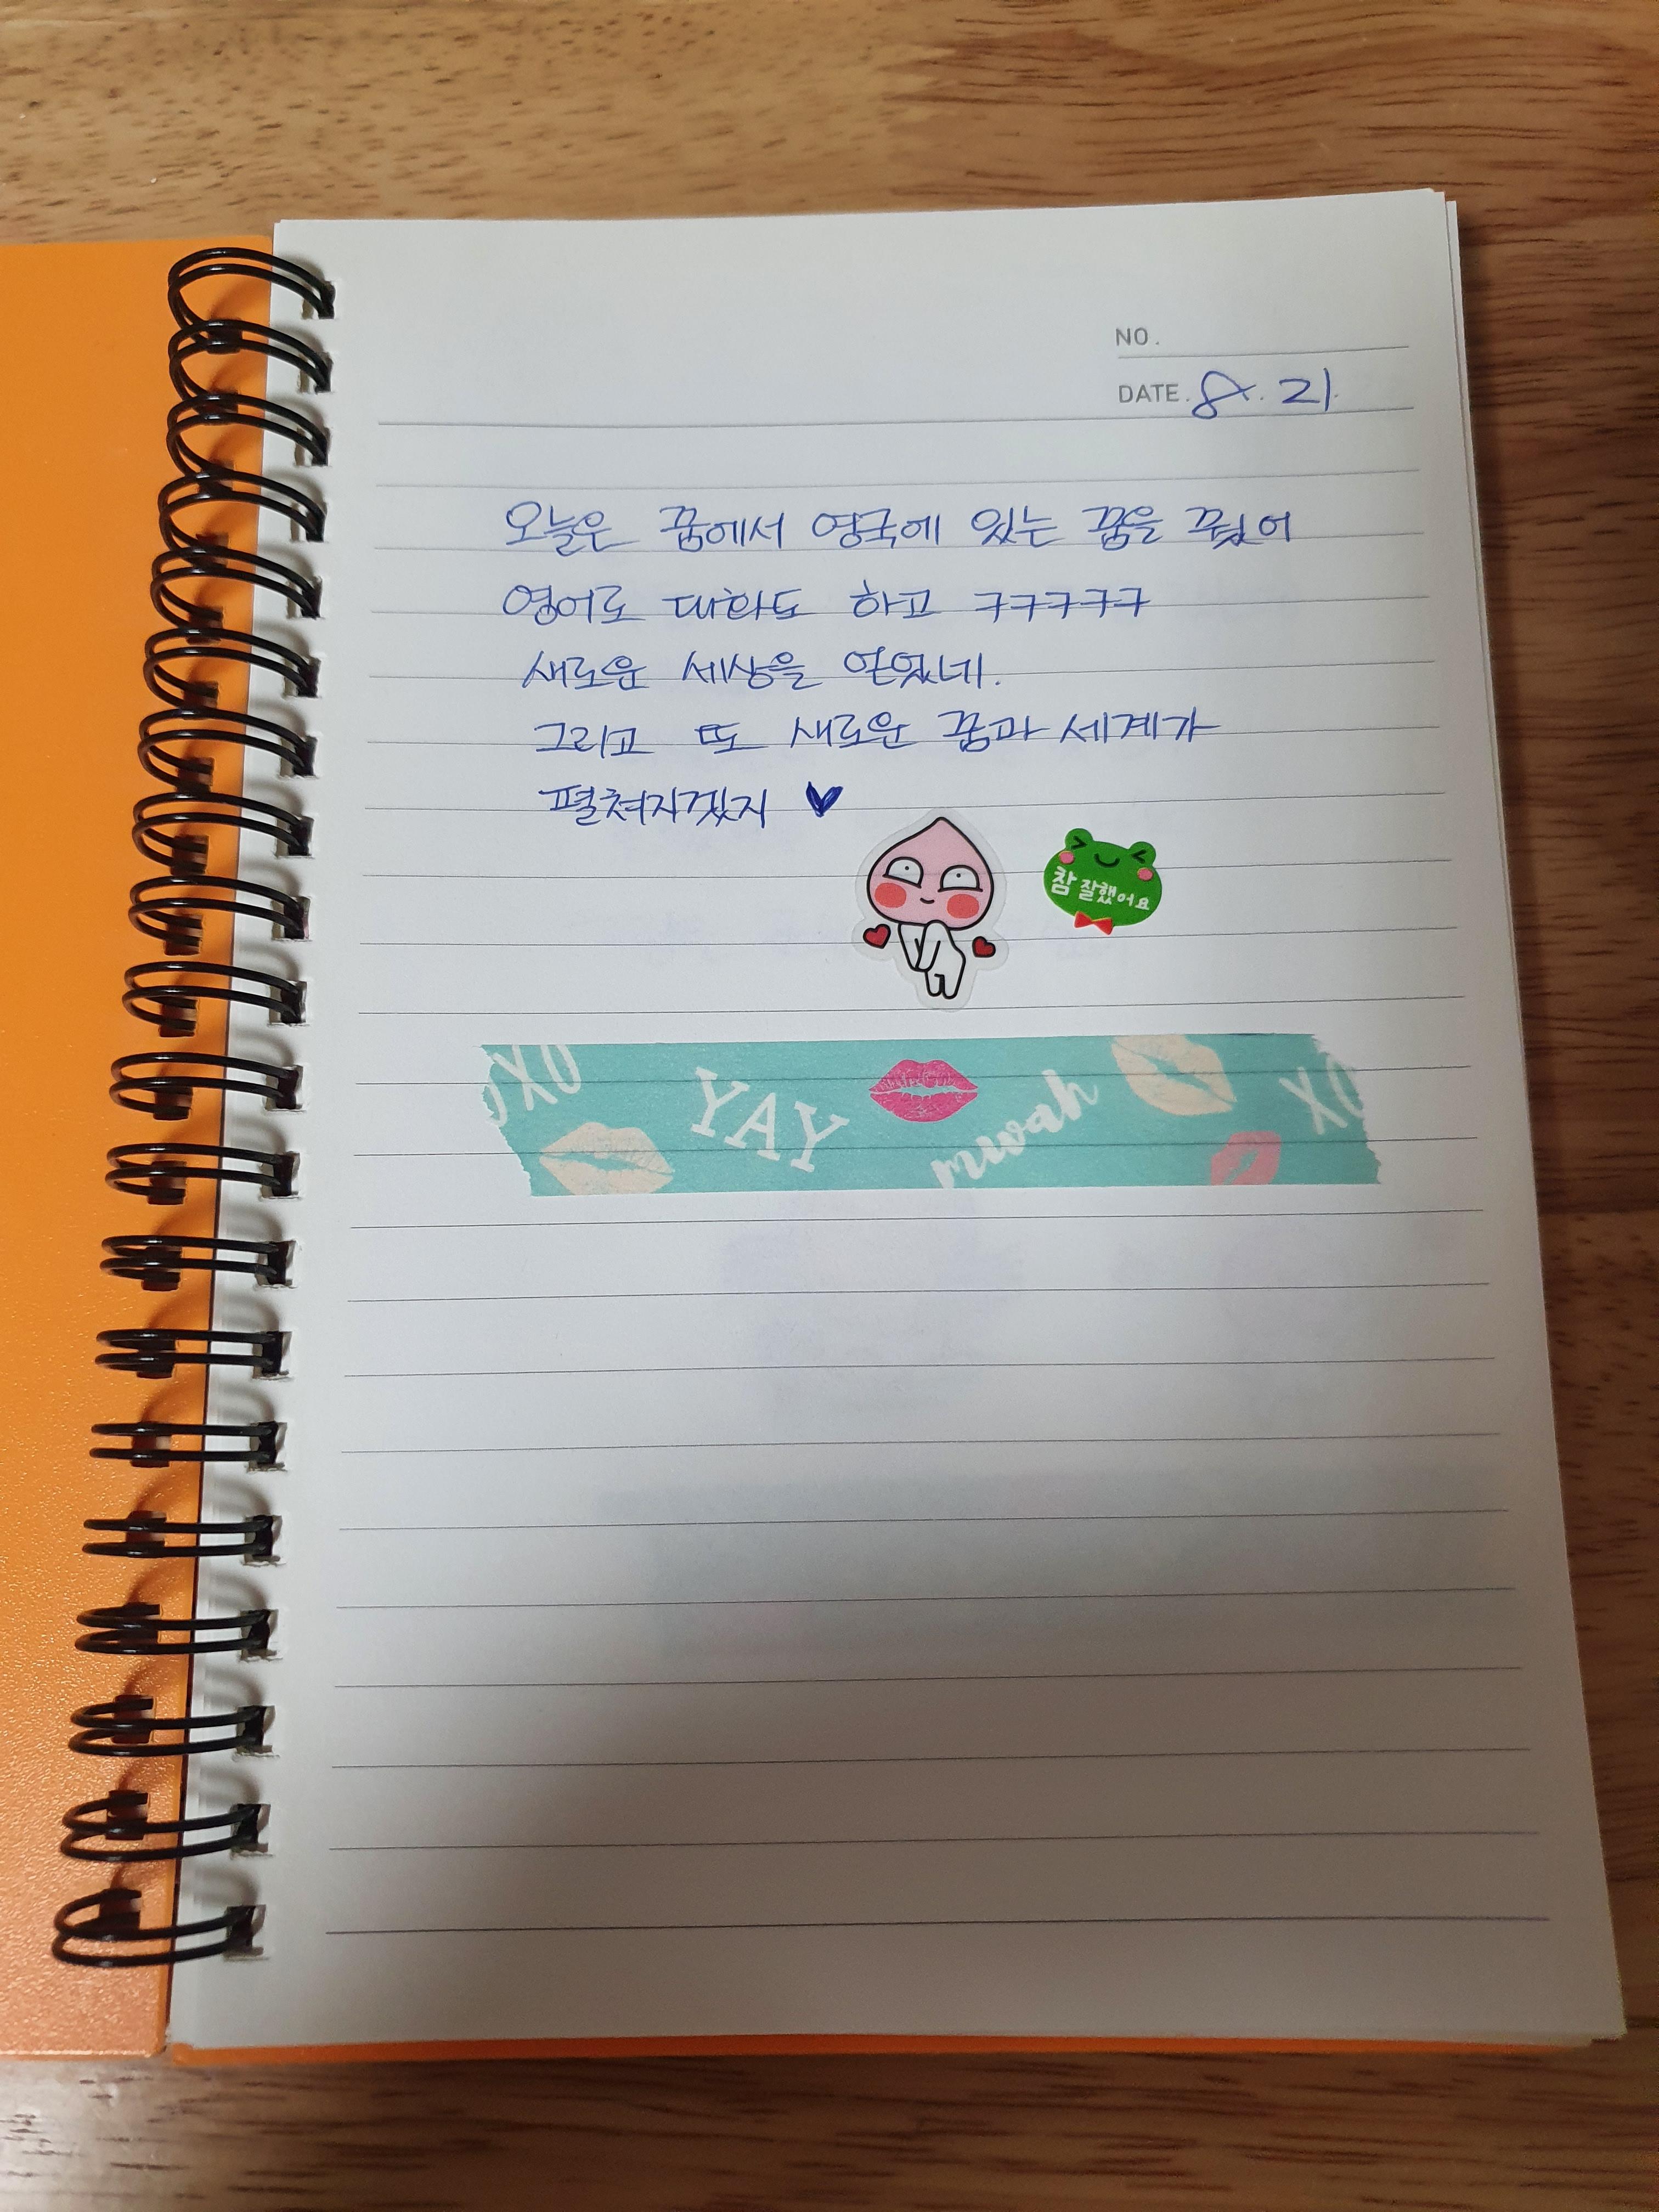 NO.
DATE. 8. 21.
오늘은 꿈에서 영국에 있는 꿈을 꿨어
영어로 대화도 하고 ㅋㅋㅋㅋㅋ
새로운 세상을 얻었네.
그리고 또 새로운 꿈과 세계가
펼쳐지겠지 ♥
참 잘했어요
XO YAY mwah XO